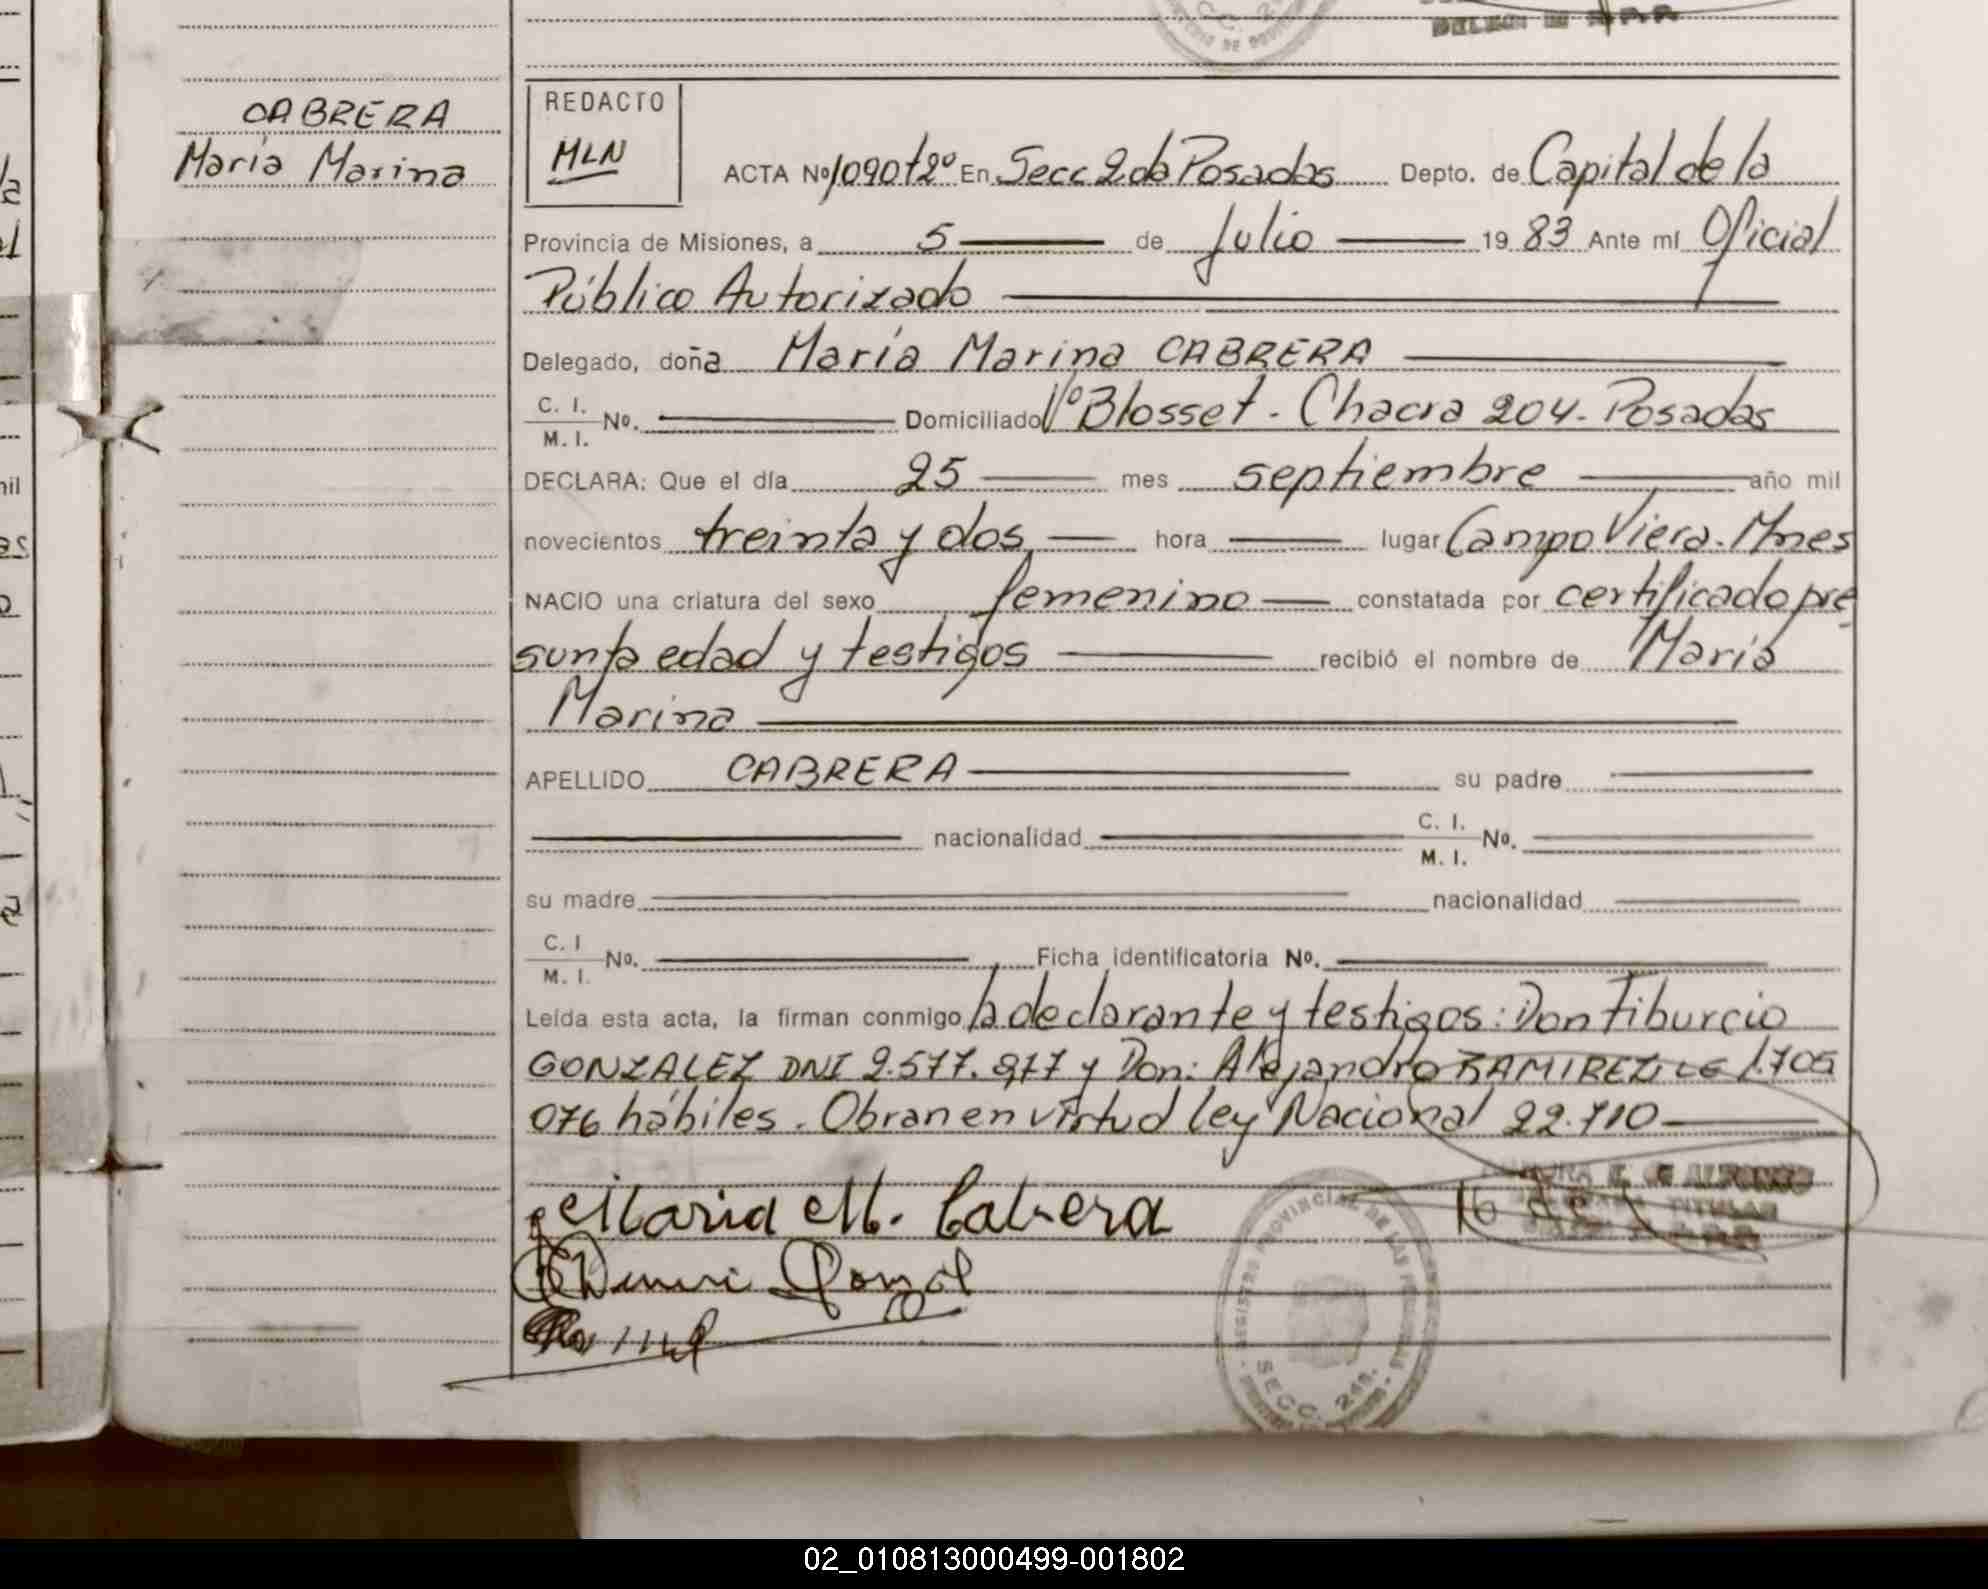 CABRERA
María Marina
REDACTO
MLN
ACTA Nº 1090 t2º En Secc 2da Posadas Depto. de Capital de la
Provincia de Misiones, a 5 de Julio 19 83 Ante mí Oficial
Público Autorizado
Delegado, doña María Marina CABRERA
C. I.
M. I. No. Domiciliado Vº Blosset - Chacra 204 - Posadas
DECLARA: Que el día 25 mes septiembre año mil
novecientos treinta y dos hora lugar Campo Viera. Mnes
NACIO una criatura del sexo femenino constatada por certificado pre
sunta edad y testigos recibió el nombre de María
Marina
APELLIDO CABRERA su padre
nacionalidad C. I.
M. I. No.
su madre nacionalidad
C. I
M. I. No. Ficha identificatoria No.
Leída esta acta, la firman conmigo la declarante y testigos: Don Tiburcio
GONZALEZ DNI 2.577.977 y Don: Alejandro RAMIREZ LE 1.705
076 hábiles. Obran en virtud ley Nacional 22.710
Maria M. Cabrera
REGISTRO PROVINCIAL DE LAS PERSONAS
SECC. 2da.
02_010813000499-001802